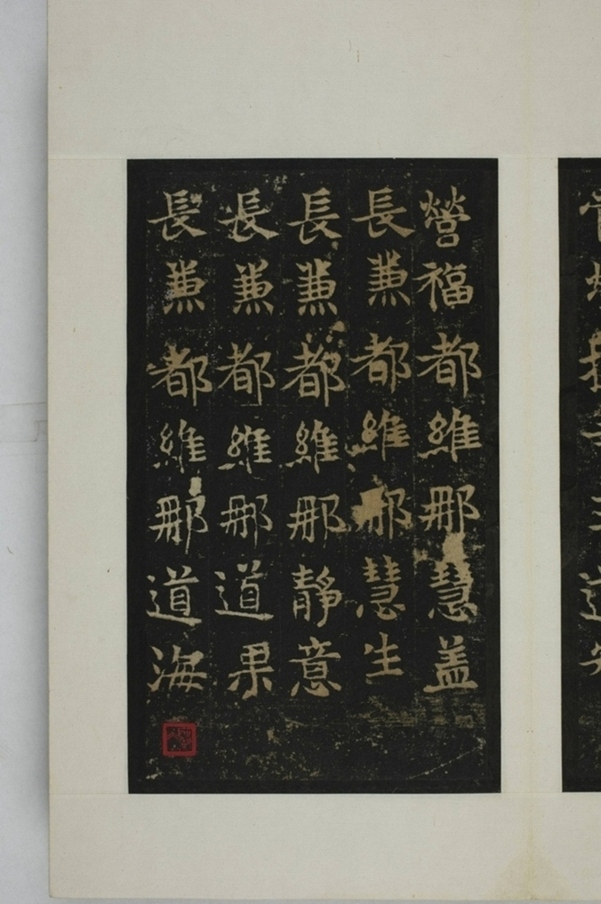 營福都維那慧盖
長兼都維那慧生
長兼都維那靜意
長兼都維那道果
長兼都維那道海